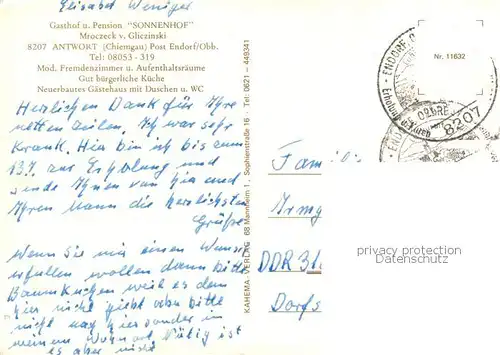 Elisabet Weniger
Gasthof u. Pension "SONNENHOF"
Mroczeck v. Gliczinski
8207 ANTWORT (Chiemgau) Post Endorf/Obb.
Tel: 08053 - 319
Mod. Fremdenzimmer u. Aufenthaltsräume
Gut bürgerliche Küche
Neuerbautes Gästehaus mit Duschen u. WC
Herzlichen Dank für Ihre
netten Zeilen. Ich war sehr
Krank. Hier bin ich bis zum
13.7. zur Erholung und
sende Ihnen von hier und
Ihren Mann die herzlichsten
Grüße
Wenn Sie mir einen Wunsch
erfüllen wollen dann bitte
Baumkuchen weil es den
hier nicht gibt aber bitte
nicht nach hier sondern in
meinem Wohnort. Nötig ist
es aber nicht
KAHEMA-VERLAG 68 Mannheim 1, Sophienstraße 16 · Tel. 0621 - 449341
Nr. 11632
ENDORF, O
OBBAY
8207
Fam
Irmg
DDR 31
Dorfs
privacy protection
Datenschutz